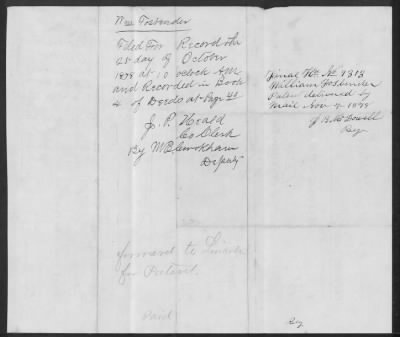 Wm Fosbender
Filed For Record the
25 day of October
1878 at 10 oclock AM
and Recorded in Book
4 of Deeds at Page
J. P. Heald
Co Clerk
By
Deputy
Final No 9313
William Fosbender
Patent delivered by
Mail Nov 7 1878
J B McDowell
Reg
forward to Lincoln
for Patent.
Paid
Reg